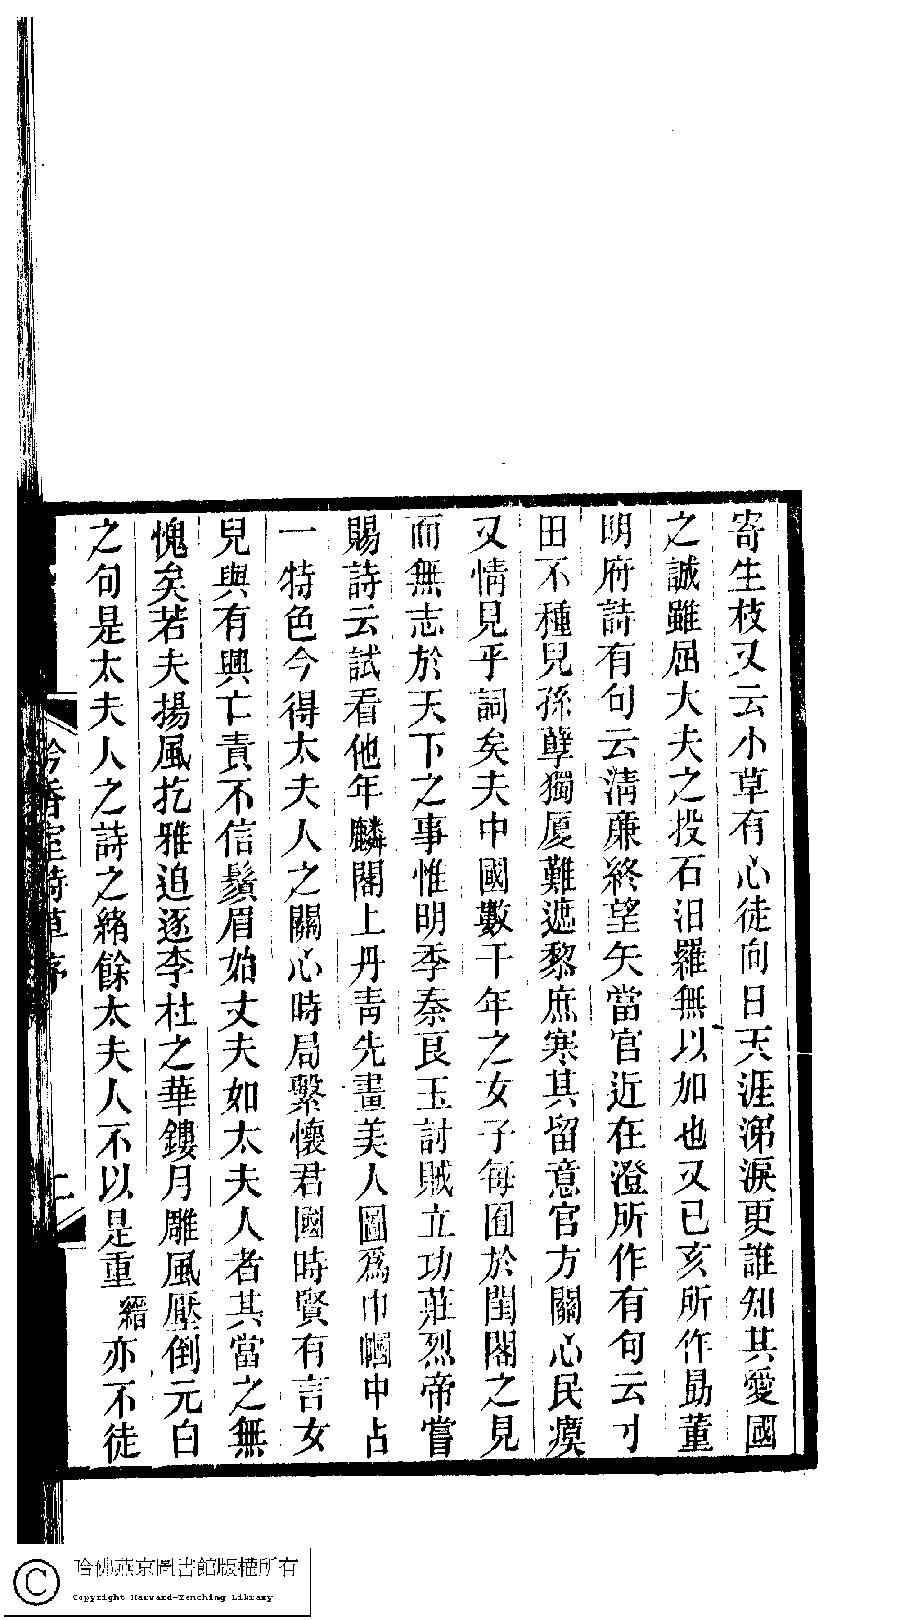 寄生枝又云小草有心徒向日天涯涕淚更誰知其愛國
之誠雖屈大夫之投石汨羅無以加也又已亥所作勗董
明府詩有句云淸廉終望矢當官近在澄所作有句云寸
田不種兒孫孽獨厦難遮黎庶寒其留意官方關心民瘼
又情見乎詞矣夫中國數千年之女子每囿於閨閣之見
而無志於天下之事惟明季秦良玉討賊立功莊烈帝嘗
賜詩云試看他年麟閣上丹靑先畫美人圖爲巾幗中占
一特色今得太夫人之關心時局繫懷君國時賢有言女
兒與有興亡責不信鬚眉始丈夫如太夫人者其當之無
愧矣若夫揚風扢雅追逐李杜之華鏤月雕風壓倒元白
之句是太夫人之詩之緖餘太夫人不以是重縉亦不徒
吟香室詩草序
哈佛燕京圖書館版權所有
Copyright Harvard-Yenching Library